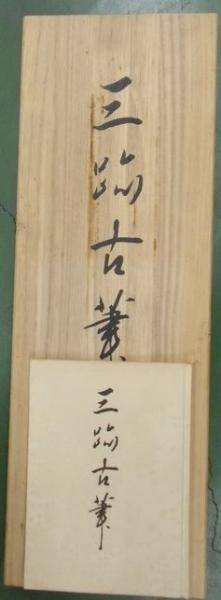 三跡古筆
三跡古筆